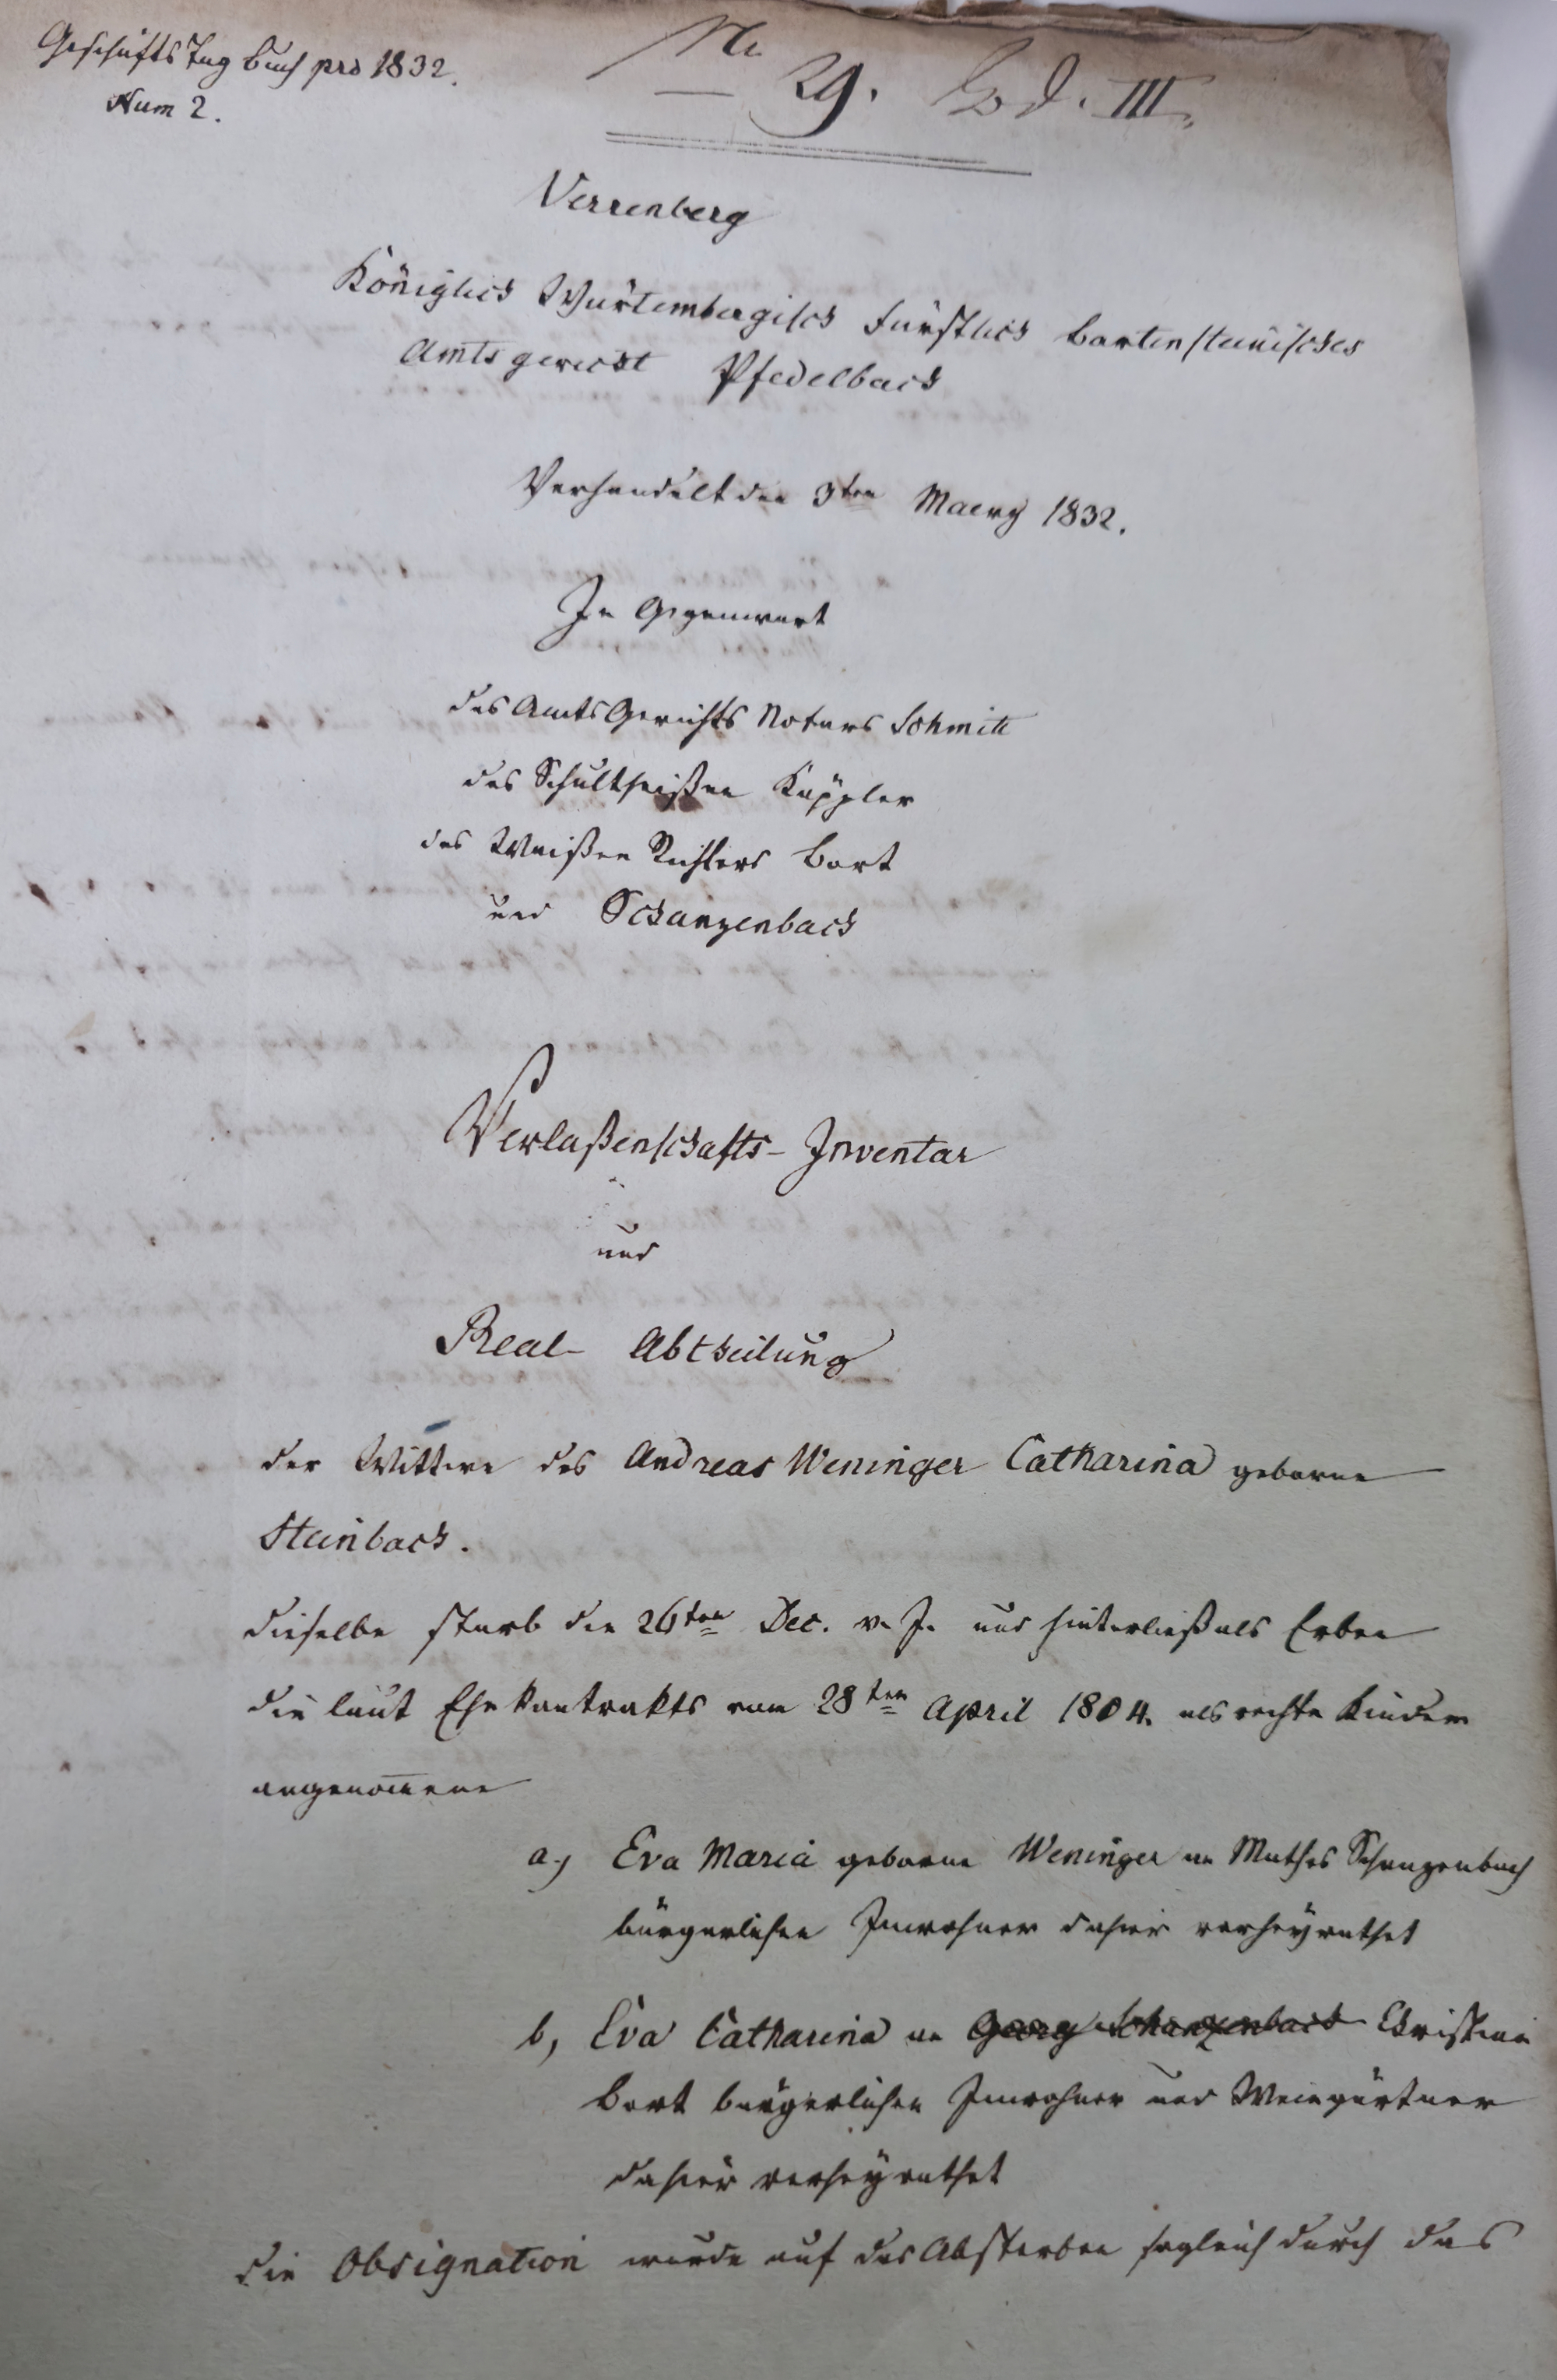 Geschäfts Tag Buch pro 1832.
Num 2.
No 29. Lod. III.
Verrenberg
Königlich Würtembergisch Fürstlich Bartensteinisches
Amtsgericht Pfedelbach
Verhandelt den 3ten Maerz 1832.
In Gegenwart
des Amts Gerichts Notars Schmitt
des Schultheißen Käppler
des Waißen Richters Bort
und Schanzenbach
Verlaßenschafts-Inventar
und
Real-Abtheilung
der Wittwe des Andreas Weninger Catharina geborne
Steinbach.
dieselbe starb den 26ten Dec. v. J. und hinterließ als Erben
die laut Ehekontrakts vom 28ten April 1804. als rechte Kinder
angenom̄ene
a.) Eva Maria geborne Weninger an Mathes Schanzenbach
bürgerlichen Inwohner dahier verheyrathet
b, Eva Catharina an Georg Schanzenbach Christian
Bort bürgerlichen Inwohner und Weingärtner
dahier verheyrathet
die Obsignation wurde auf das Absterben sogleich durch das